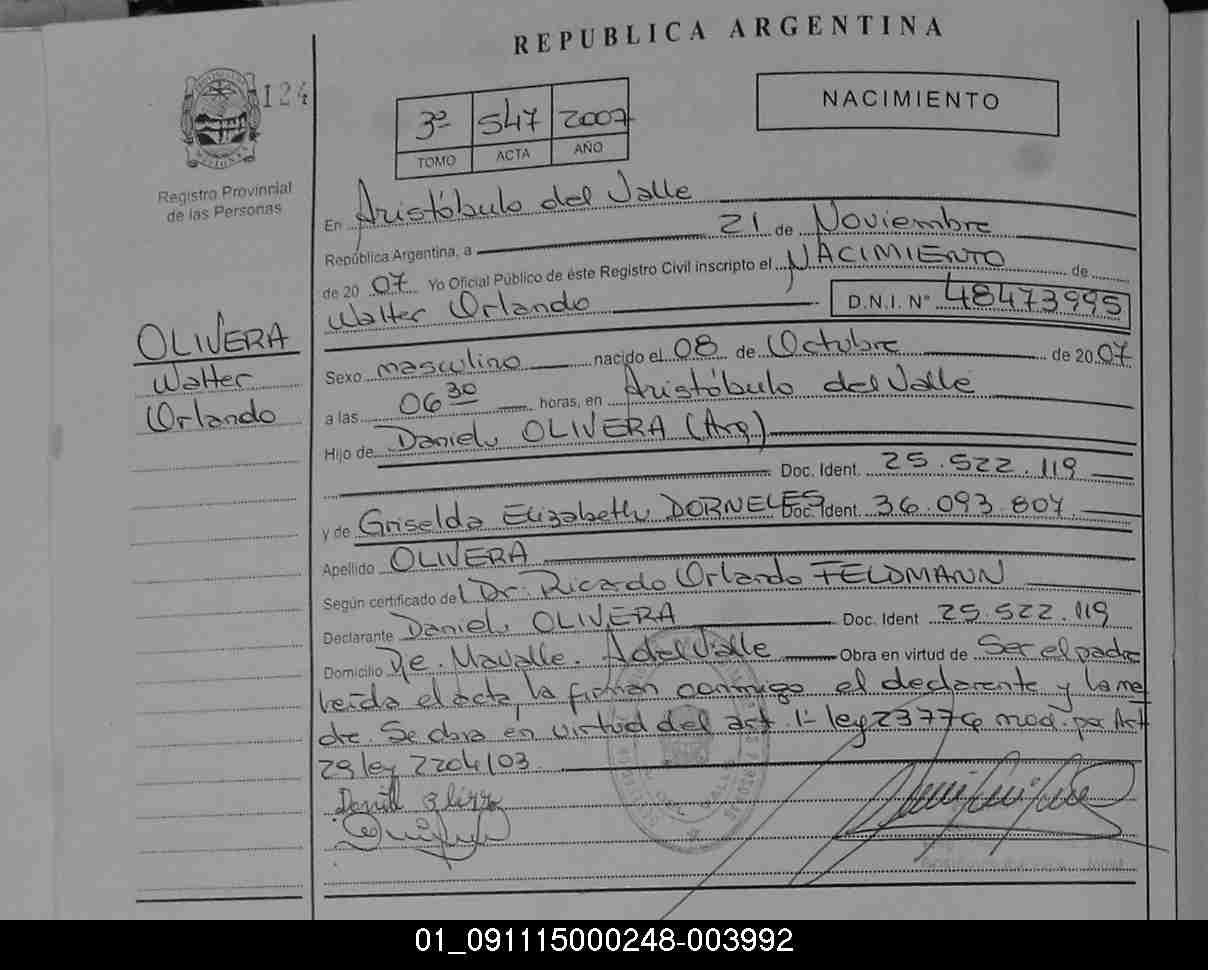 REPUBLICA ARGENTINA
124
3º 547 2007
TOMO ACTA AÑO
NACIMIENTO
Registro Provincial
de las Personas
En Aristóbulo del Valle
República Argentina, a 21 de Noviembre
de 20 07 Yo Oficial Público de éste Registro Civil inscripto el NACIMIENTO de
Walter Orlando D.N.I. Nº 48473995
OLIVERA
Walter
Orlando
Sexo masculino nacido el 08 de Octubre de 20 07
a las 06 30 horas, en Aristóbulo del Valle
Hijo de Daniel OLIVERA (Arg)
Doc. Ident. 25.522.119
y de Griselda Elizabeth DORNELES Doc. Ident. 36.093.807
Apellido OLIVERA
Según certificado del Dr. Ricardo Orlando FELDMANN
Declarante Daniel OLIVERA Doc. Ident 25.522.119
Domicilio A del Valle Obra en virtud de Ser el padre
leída el acta, la firman conmigo el declarante y la ma
dre. Se obra en virtud del art. 1º ley 23776 mod. por Art
29 ley 2204/03.
01_091115000248-003992